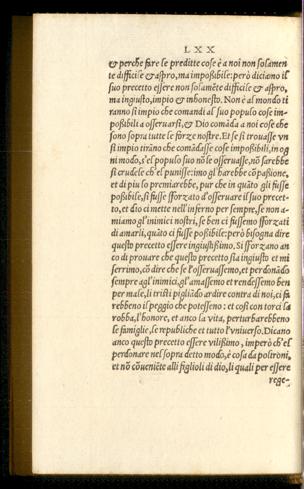 LXX
& perche fare le preditte cose è a noi non solamen
te difficile & aspro, ma impoßibile: però diciamo il
suo precetto essere non solamẽte difficile & aspro,
ma ingiusto, impio & inhonesto. Non è al mondo ti
ranno si impio che comandi al suo populo cose im-
poßibili a osseruarsi, & Dio comãda a noi cose che
sono sopra tutte le forze nostre. Et se si trouasse vn
si impio tirãno che comãdasse cose impoßibili, in og
ni modo, s'el populo suo nõ le osseruasse, nõ sarebbe
si crudele ch'el punisse: imo gl'harebbe cõpaßione,
et di piu lo premiarebbe, pur che in quato gli fusse
poßibile, si fusse sforzato d'osseruare il suo precet-
to, et dio ci mette nell'inferno per sempre, se non a-
miamo gl'inimici nostri, se ben ci fussemo sforzati
di amarli, quato ci fusse poßibile: però bisogna dire
questo precetto essere ingiustißimo. Si sforzano an
co di prouare che questo precetto sia ingiusto et mi
serrimo, cõ dire che se l'osseruassemo, et perdonãdo
sempre agl'inimici, gl'amassemo et rendessemo ben
per male, li tristi pigliãdo ardire contra di noi, ci fa
rebbeno il peggio che potesseno: et cosi con torci la
robba, l'honore, et anco la vita, perturbarebbeno
le famiglie, le republiche et tutto l'vniuerso. Dicano
anco questo precetto essere vilißimo, imperò ch'el
perdonare nel sopra detto modo, è cosa da poltroni,
et nõ cõueniẽte alli figlioli di dio, li quali per essere
rege-